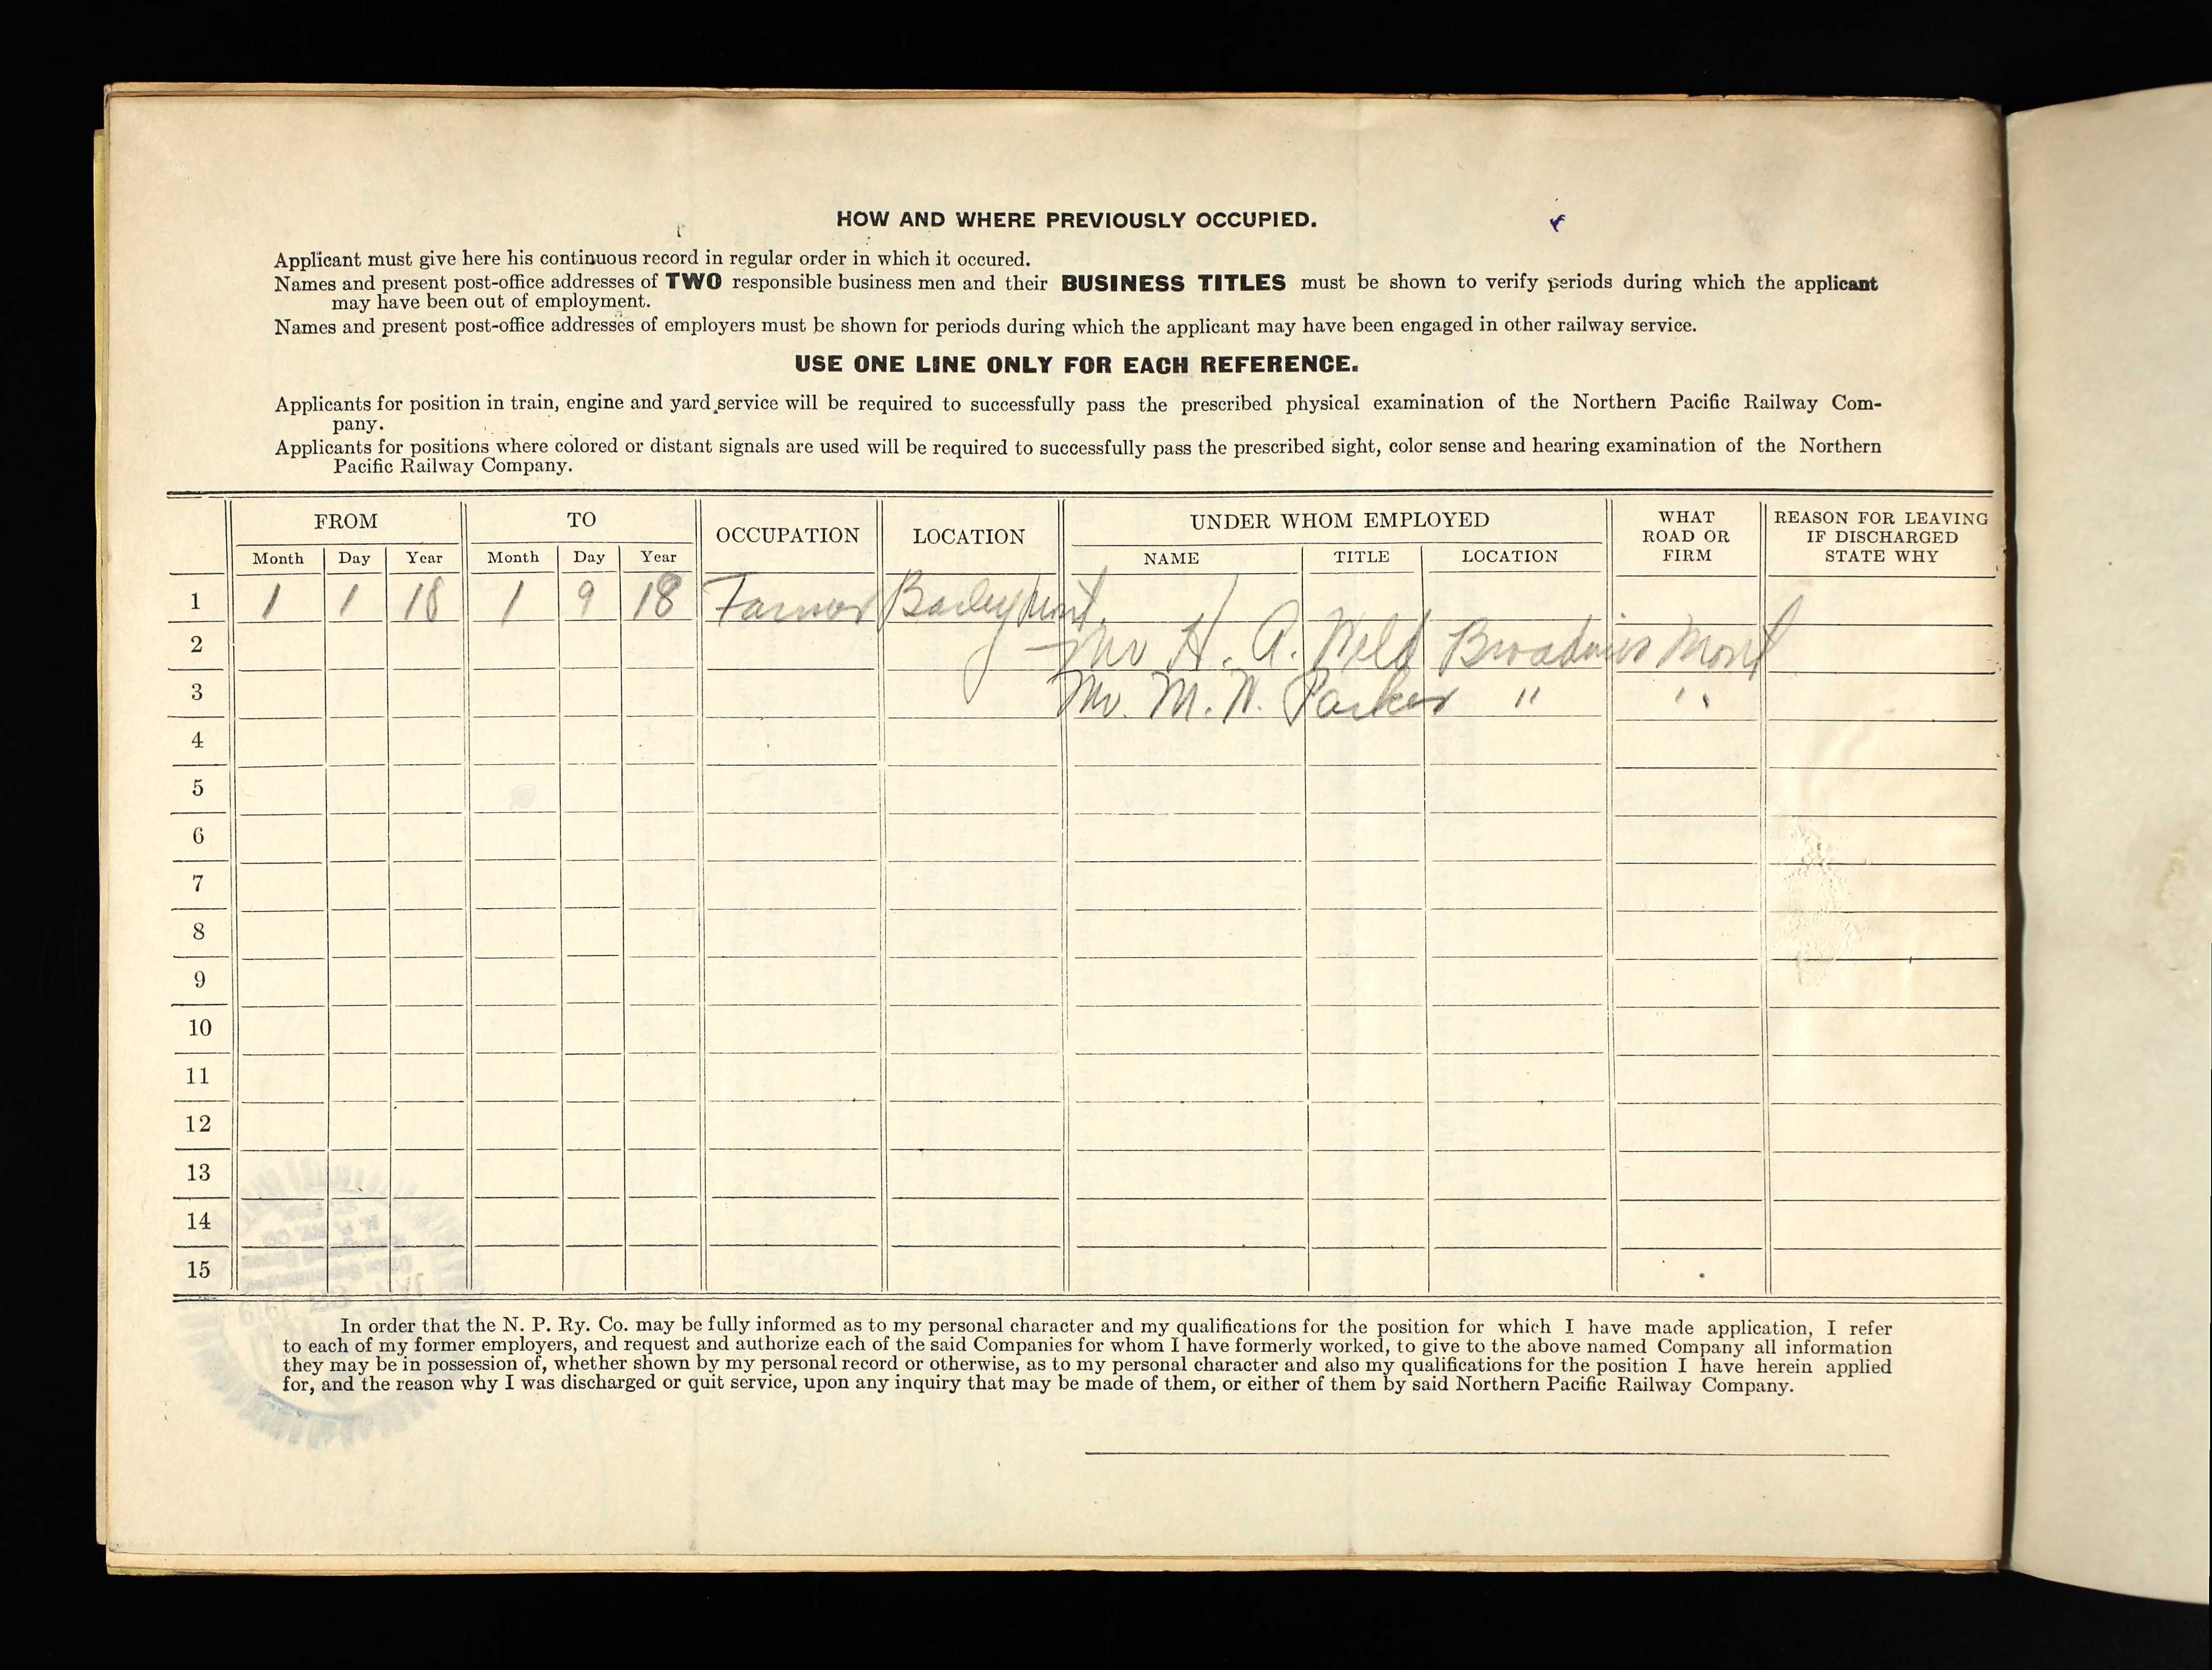 HOW AND WHERE PREVIOUSLY OCCUPIED.
Applicant must give here his continuous record in regular order in which it occured.
Names and present post-office addresses of TWO responsible business men and their BUSINESS TITLES must be shown to verify periods during which the applicant
may have been out of employment.
Names and present post-office addresses of employers must be shown for periods during which the applicant may have been engaged in other railway service.
USE ONE LINE ONLY FOR EACH REFERENCE.
Applicants for position in train, engine and yard service will be required to successfully pass the prescribed physical examination of the Northern Pacific Railway Com-
pany.
Applicants for positions where colored or distant signals are used will be required to successfully pass the prescribed sight, color sense and hearing examination of the Northern
Pacific Railway Company.
FROM TO OCCUPATION LOCATION UNDER WHOM EMPLOYED WHAT ROAD OR FIRM REASON FOR LEAVING IF DISCHARGED STATE WHY
Month Day Year Month Day Year NAME TITLE LOCATION
1 1 1 18 1 9 18 Farmer
2 Mr H. A. Broadview Mont
3 Mr. M. W. Parker " "
4
5
6
7
8
9
10
11
12
13
14
15
In order that the N. P. Ry. Co. may be fully informed as to my personal character and my qualifications for the position for which I have made application, I refer
to each of my former employers, and request and authorize each of the said Companies for whom I have formerly worked, to give to the above named Company all information
they may be in possession of, whether shown by my personal record or otherwise, as to my personal character and also my qualifications for the position I have herein applied
for, and the reason why I was discharged or quit service, upon any inquiry that may be made of them, or either of them by said Northern Pacific Railway Company.